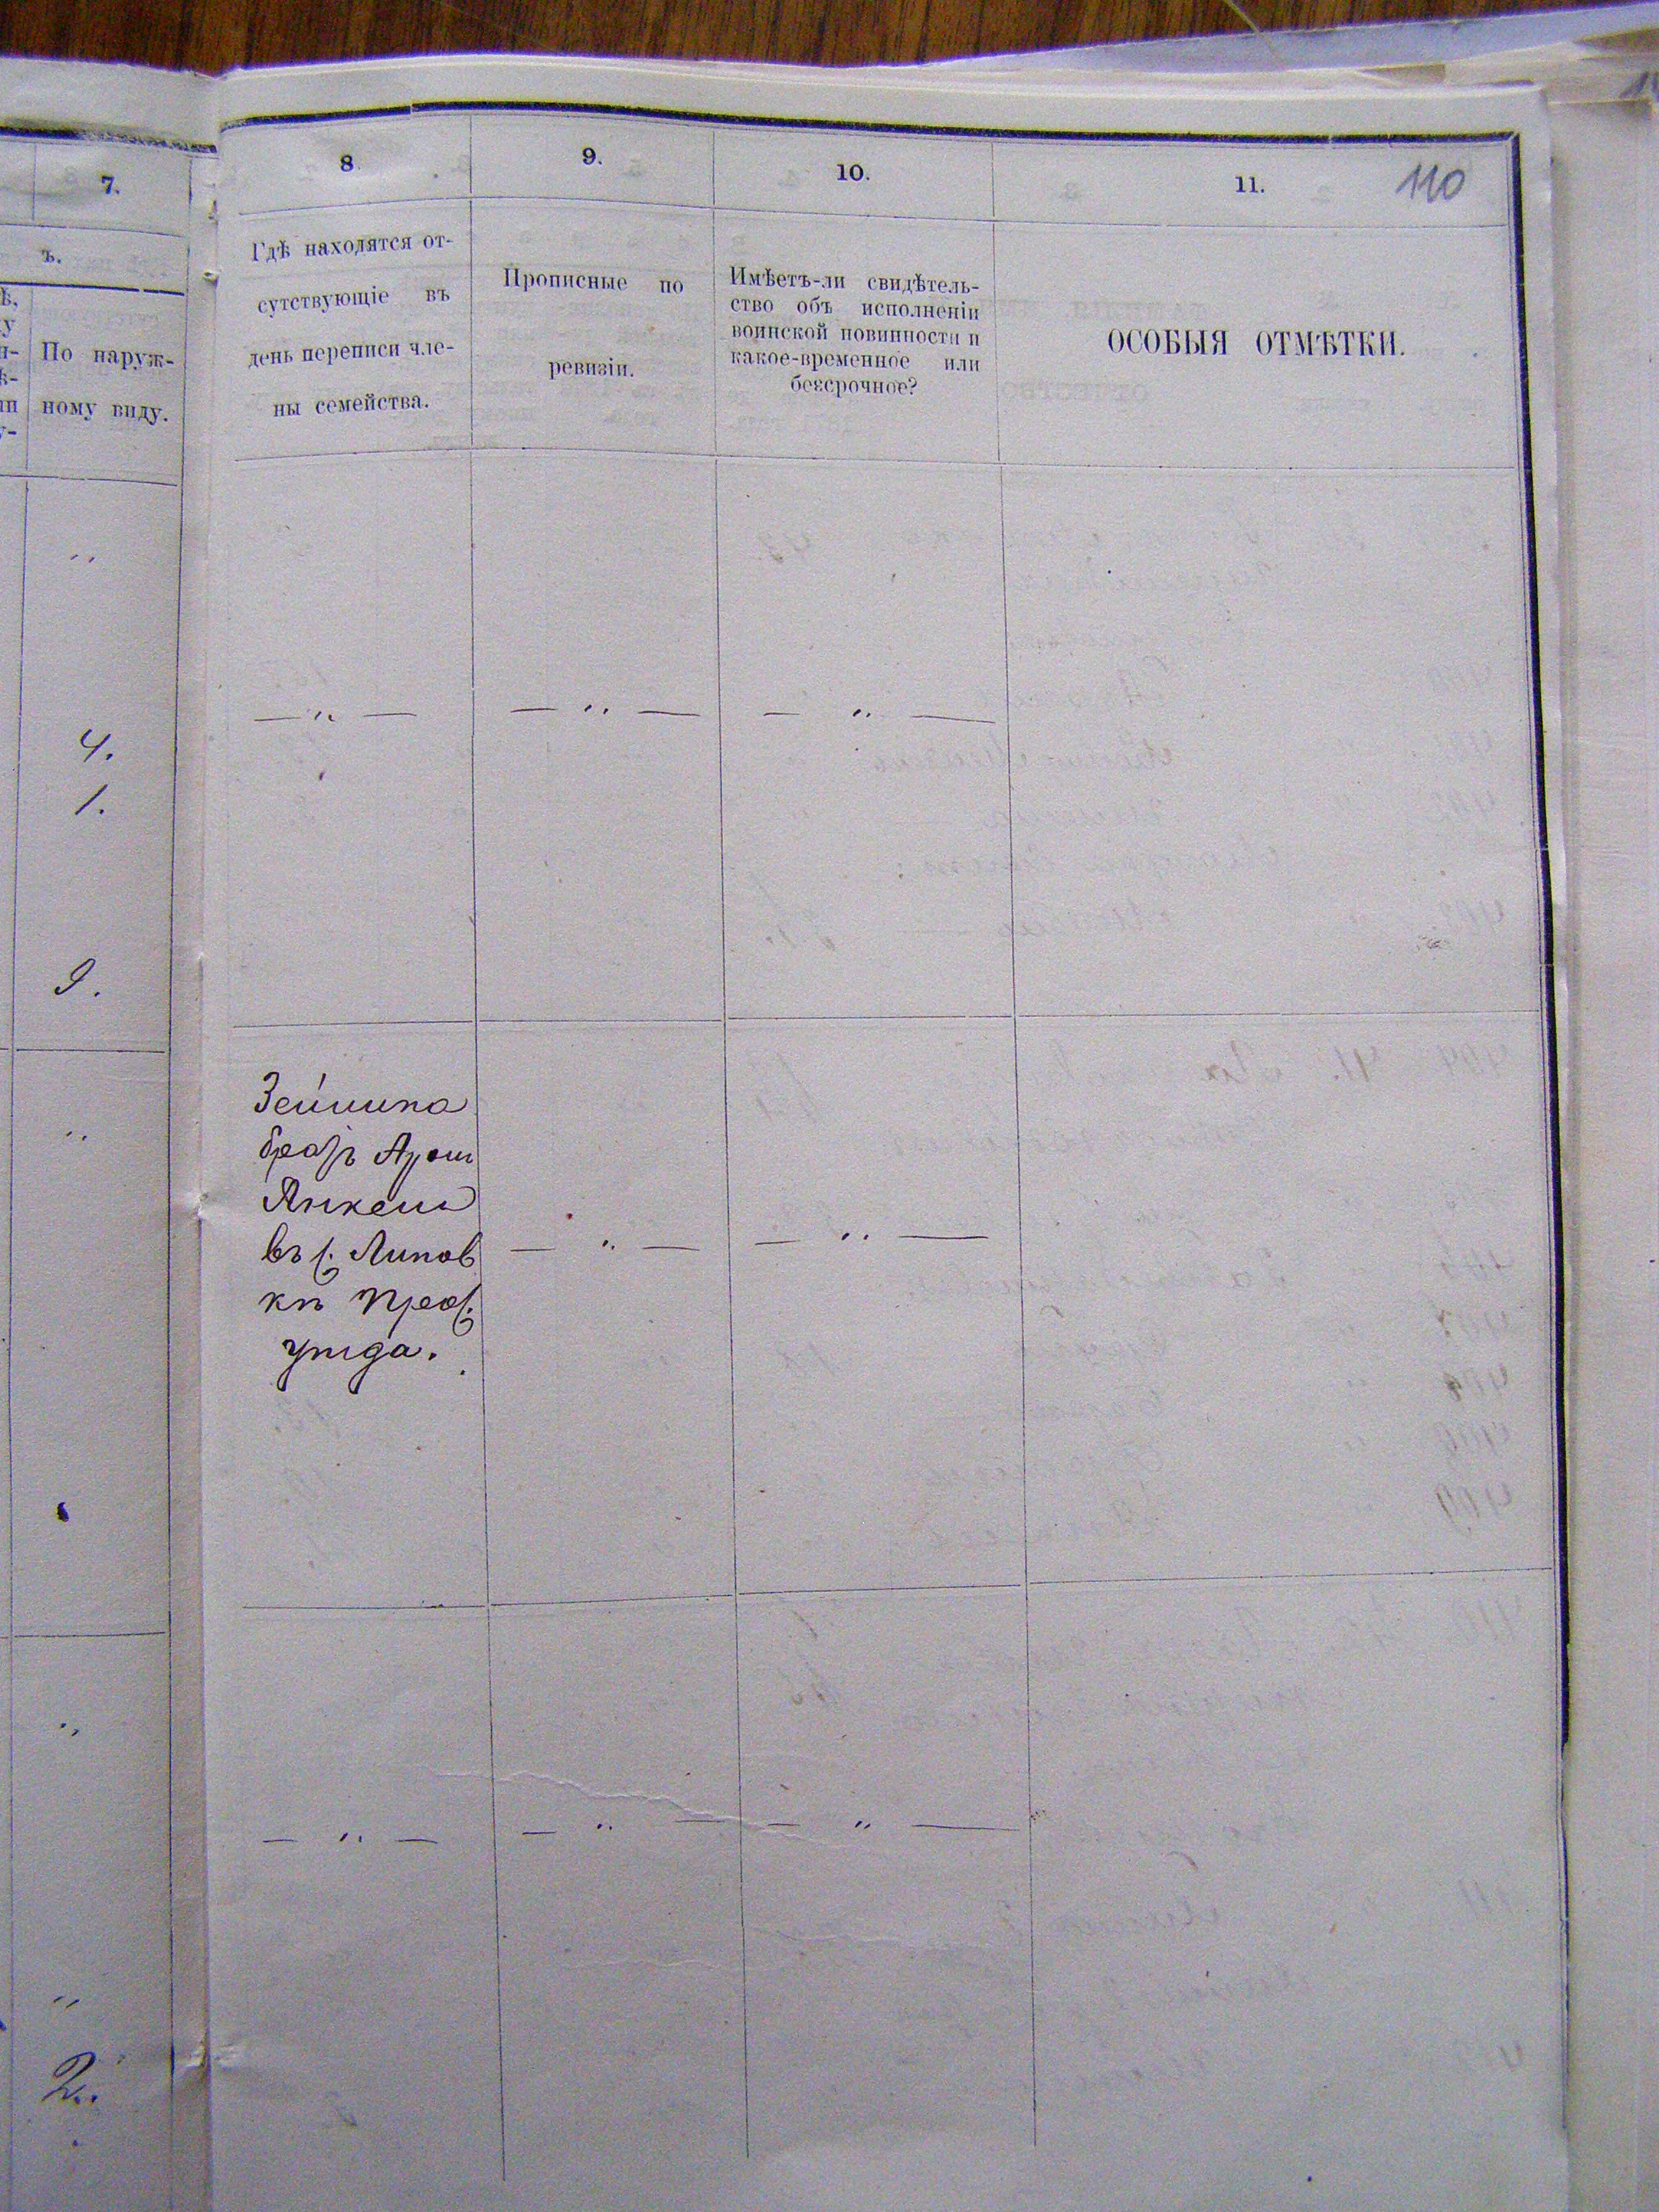 7.
ъ.
По наруж-
ному виду.
„
4.
1.
9.
„
„
„
2.
8.
9.
10.
11.
110
Гдѣ находятся от-
сутствующіе въ
день переписи чле-
ны семейства.
Прописные по
ревизіи.
Имѣетъ-ли свидѣтель-
ство объ исполненіи
воинской повинности и
какое-временное или
безсрочное?
ОСОБЫЯ ОТМѢТКИ.
— „ —
— „ —
— „ —
братъ
Янкель
въ с. Липов
кѣ
уѣзда.
— „ —
— „ —
— „ —
— „ —
— „ —